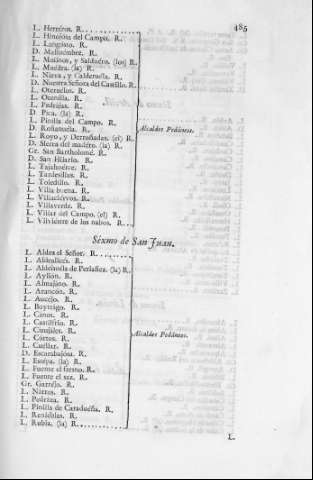 485
L. Herreros. R.
L. Hinojosa del Campo. R.
L. Langosto. R.
D. Mallombre. R.
L. Matinos, y Salduero. (los) R.
L. Muedra. (la) R.
L. Nieva, y Calderuela. R.
D. Nuestra Señora del Castillo. R.
L. Oteruelos. R.
L. Omeñaca. R.
L. Pedrajas. R.
D. Pica. (la) R.
L. Pinilla del Campo. R.
D. Roñañuela. R.
L. Royo, y Derroñadas. (el) R.
Alcaldes Pedáneos.
D. Sierra del madero. (la) R.
Gr. San Bartholomé. R.
D. San Hilario. R.
L. Tajahuerce. R.
L. Tardesillas. R.
L. Toledillo. R.
L. Villa buena. R.
L. Villaciervos. R.
L. Villaverde. R.
L. Villar del Campo. (el) R.
L. Vilviestre de los nabos. R.
Séxmo de San Juan.
L. Aldea el Señor. R.
L. Aldealices. R.
L. Aldehuela de Periañez. (la) R.
L. Ayllon. R.
L. Almajano. R.
L. Arancón. R.
L. Aucejo. R.
L. Buytrago. R.
L. Canos. R.
L. Castilfrio. R.
L. Cirujales. R.
L. Cortos. R.
L. Cuellar. R.
Alcaldes Pedáneos.
D. Escarabajosa. R.
L. Estepa. (la) R.
L. Fuente el fresno. R.
L. Fuente el saz. R.
Gr. Garrejo. R.
L. Nieros. R.
L. Portelrubio. R.
L. Pinilla de Caradueña. R.
L. Renieblas. R.
L. Rubia. (la) R.
L.